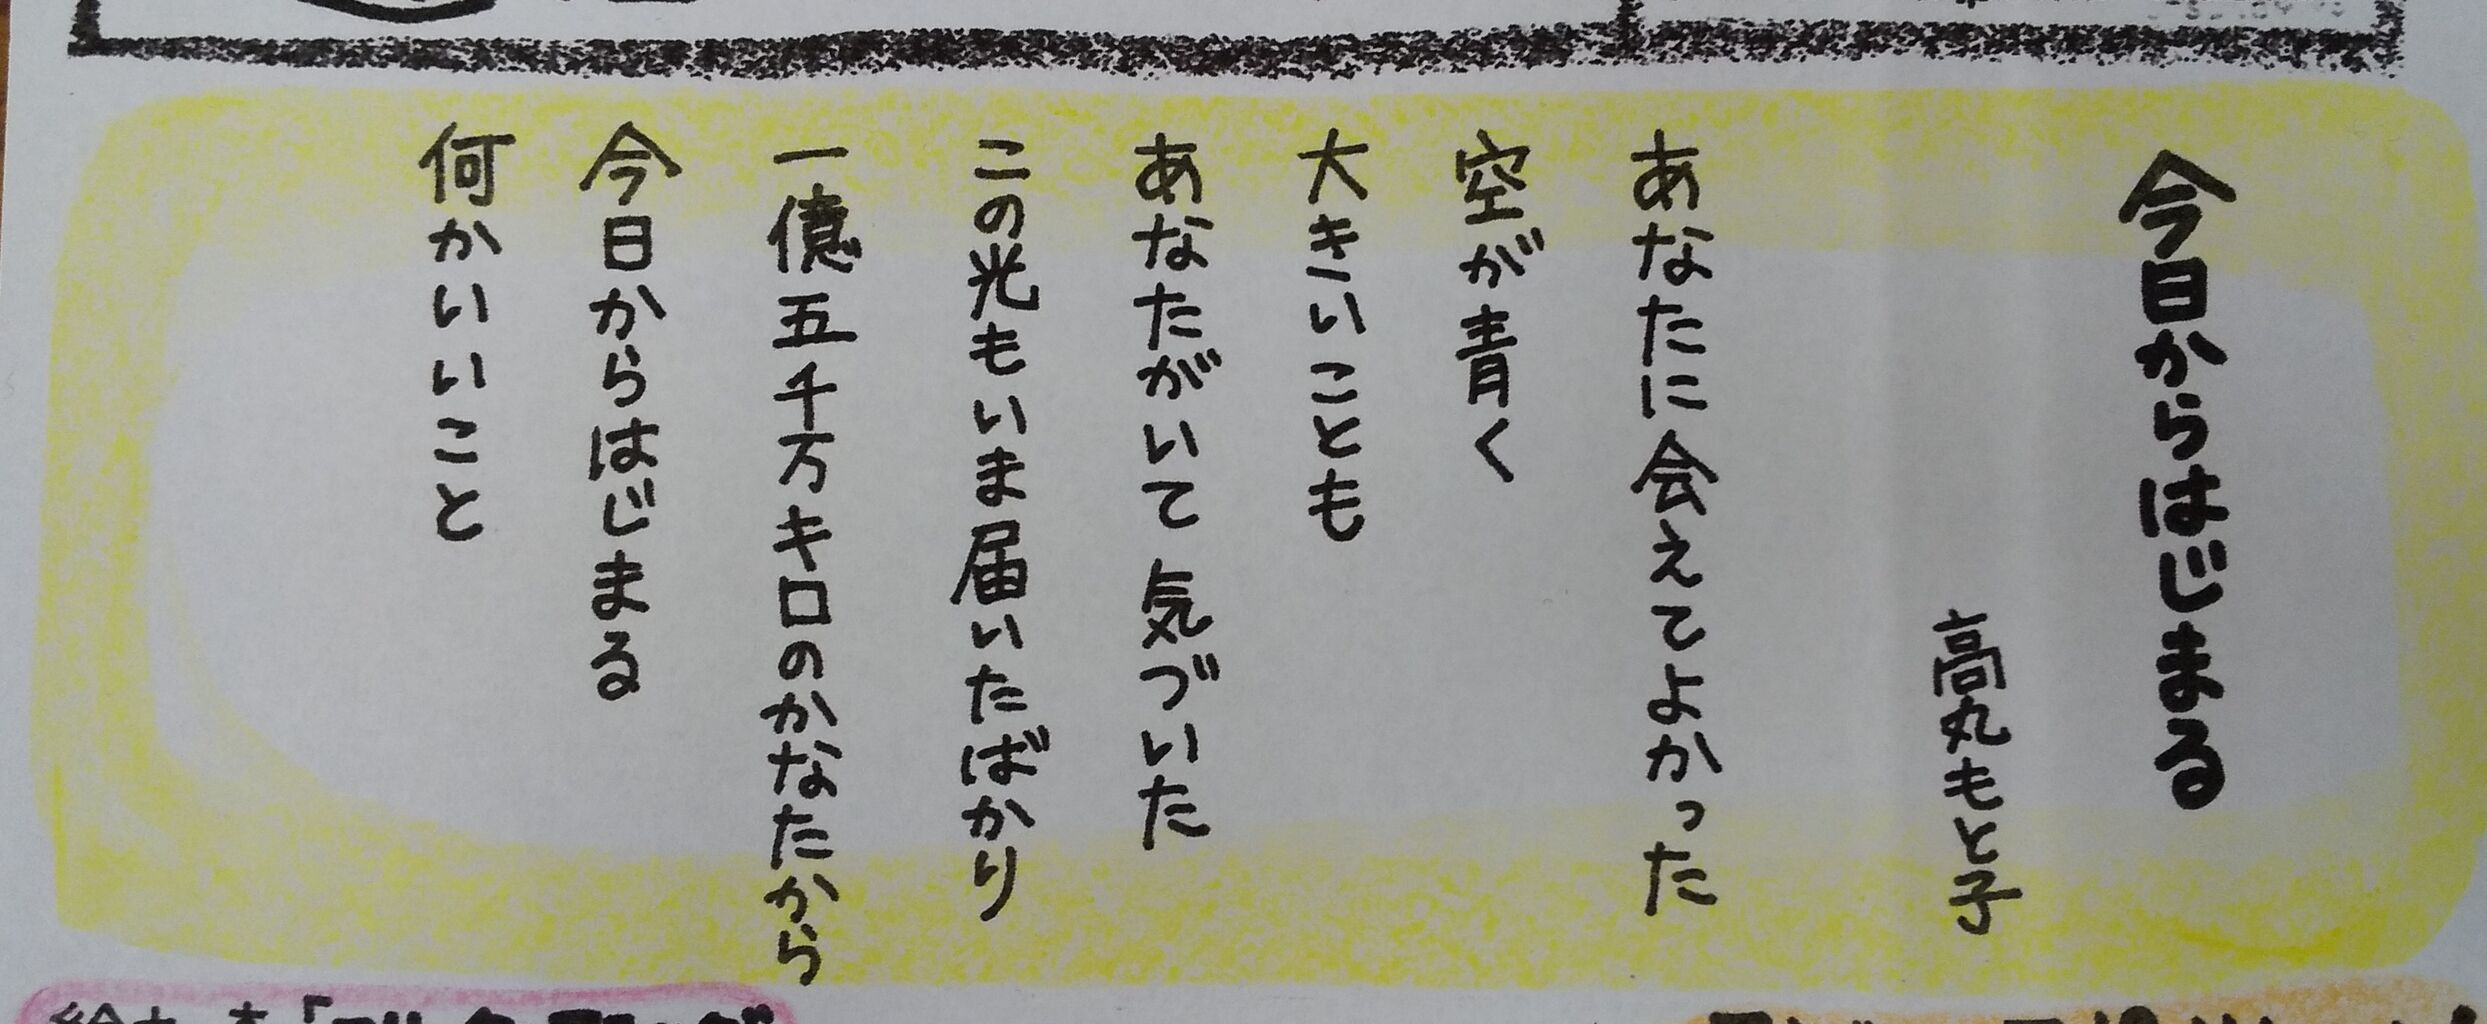 今日からはじまる
高丸もと子
あなたに会えてよかった
空が青く
大きいことも
あなたがいて気づいた
この光もいま届いたばかり
一億五千万キロのかなたから
今日からはじまる
何かいいこと